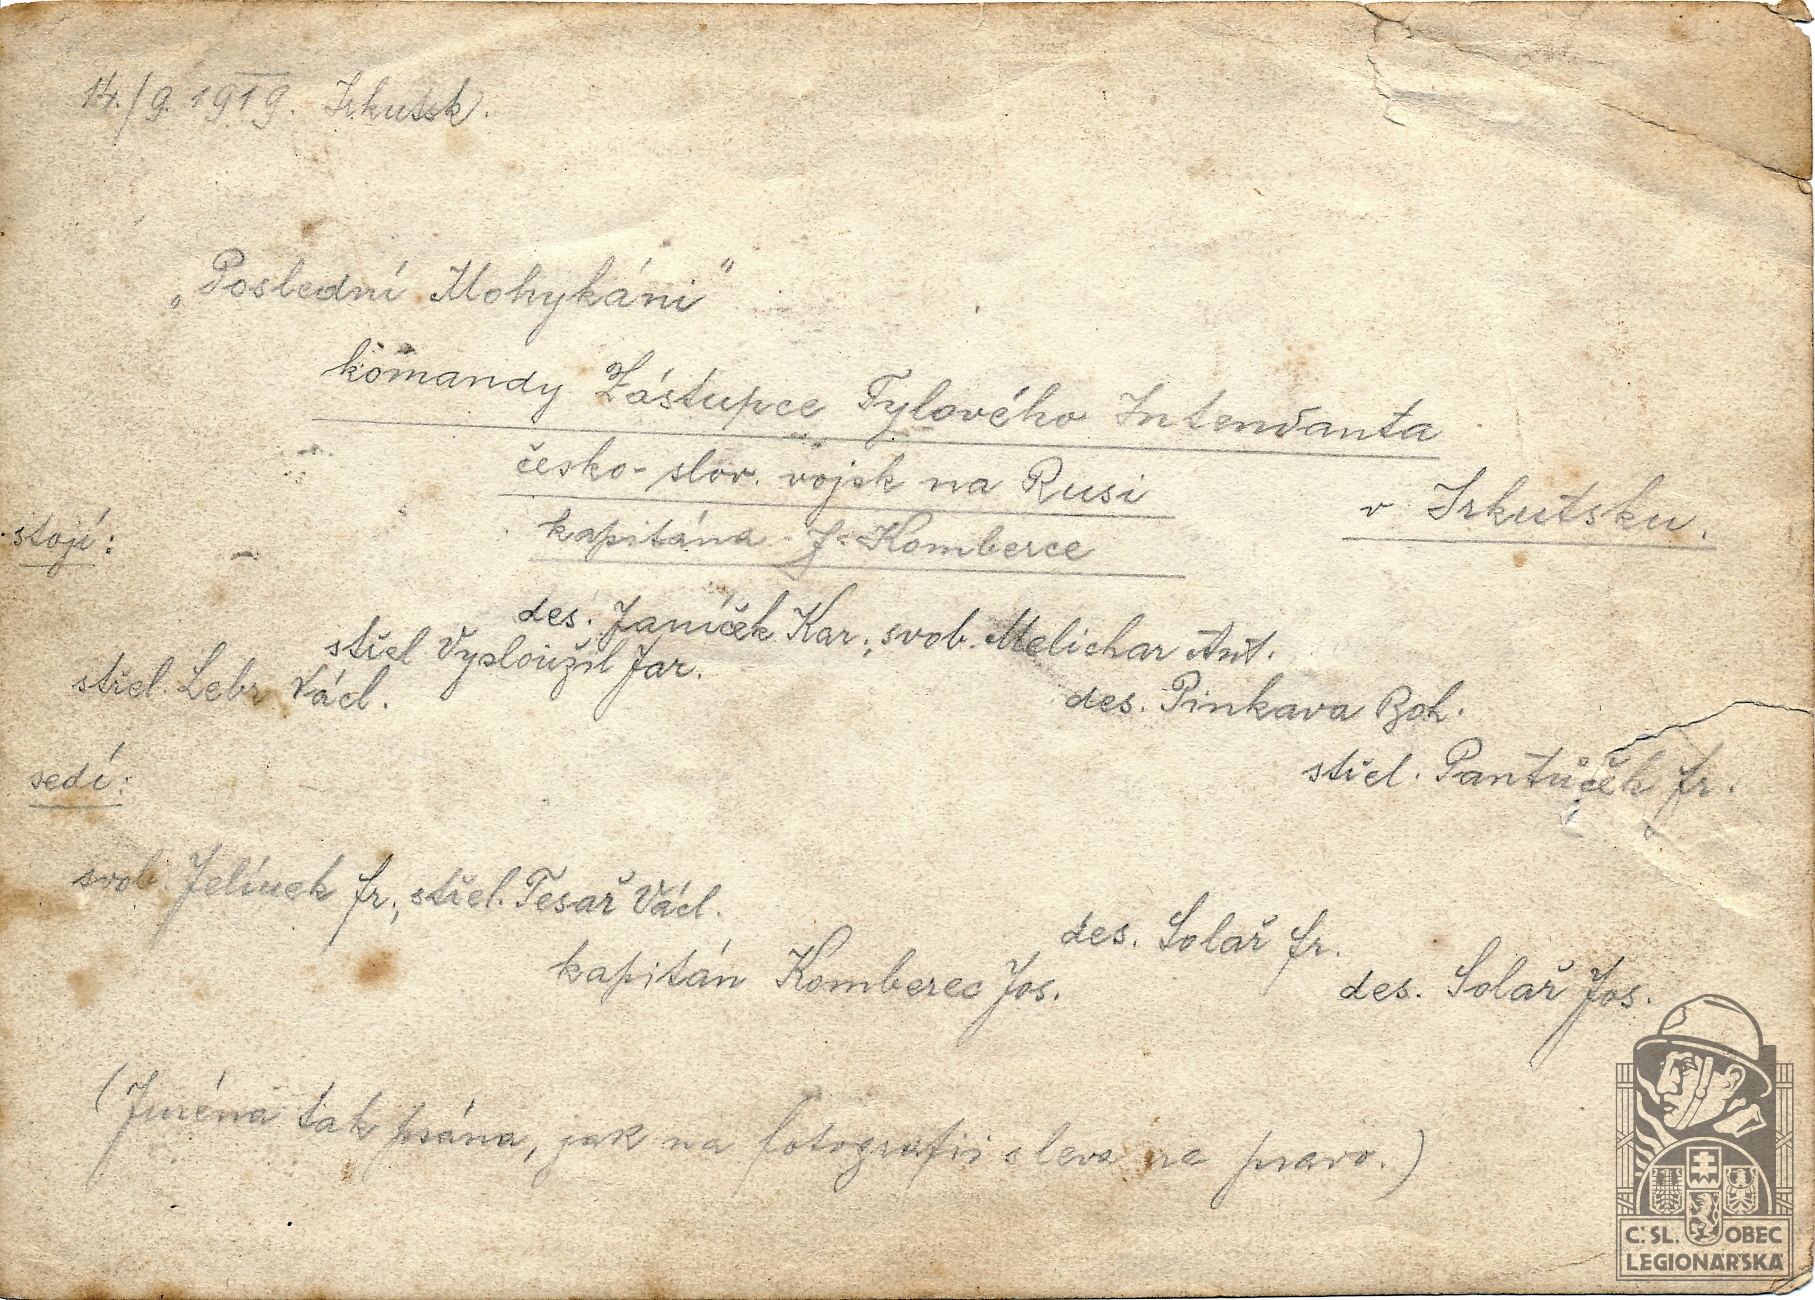 14./9. 1919. Irkutsk.
„Poslední Mohykáni"
komandy Zástupce Tylového Intendanta
česko-slov. vojsk na Rusi
v Irkutsku.
kapitána J. Komberce
stojí:
des. Janíček Kar., svob. Melichar Ant.
střel Vysloužil Jar.
střel. Lebr Václ.
des. Pinkava Boh.
střel. Pantůček Fr.
sedí:
svob. Jelínek Fr., střel. Tesař Václ.
des. Solař Fr.
kapitán Komberec Jos.
des. Solař Jos.
(Jména tak psána, jak na fotografii s leva na pravo.)
Č.SL. OBEC
LEGIONÁŘSKÁ